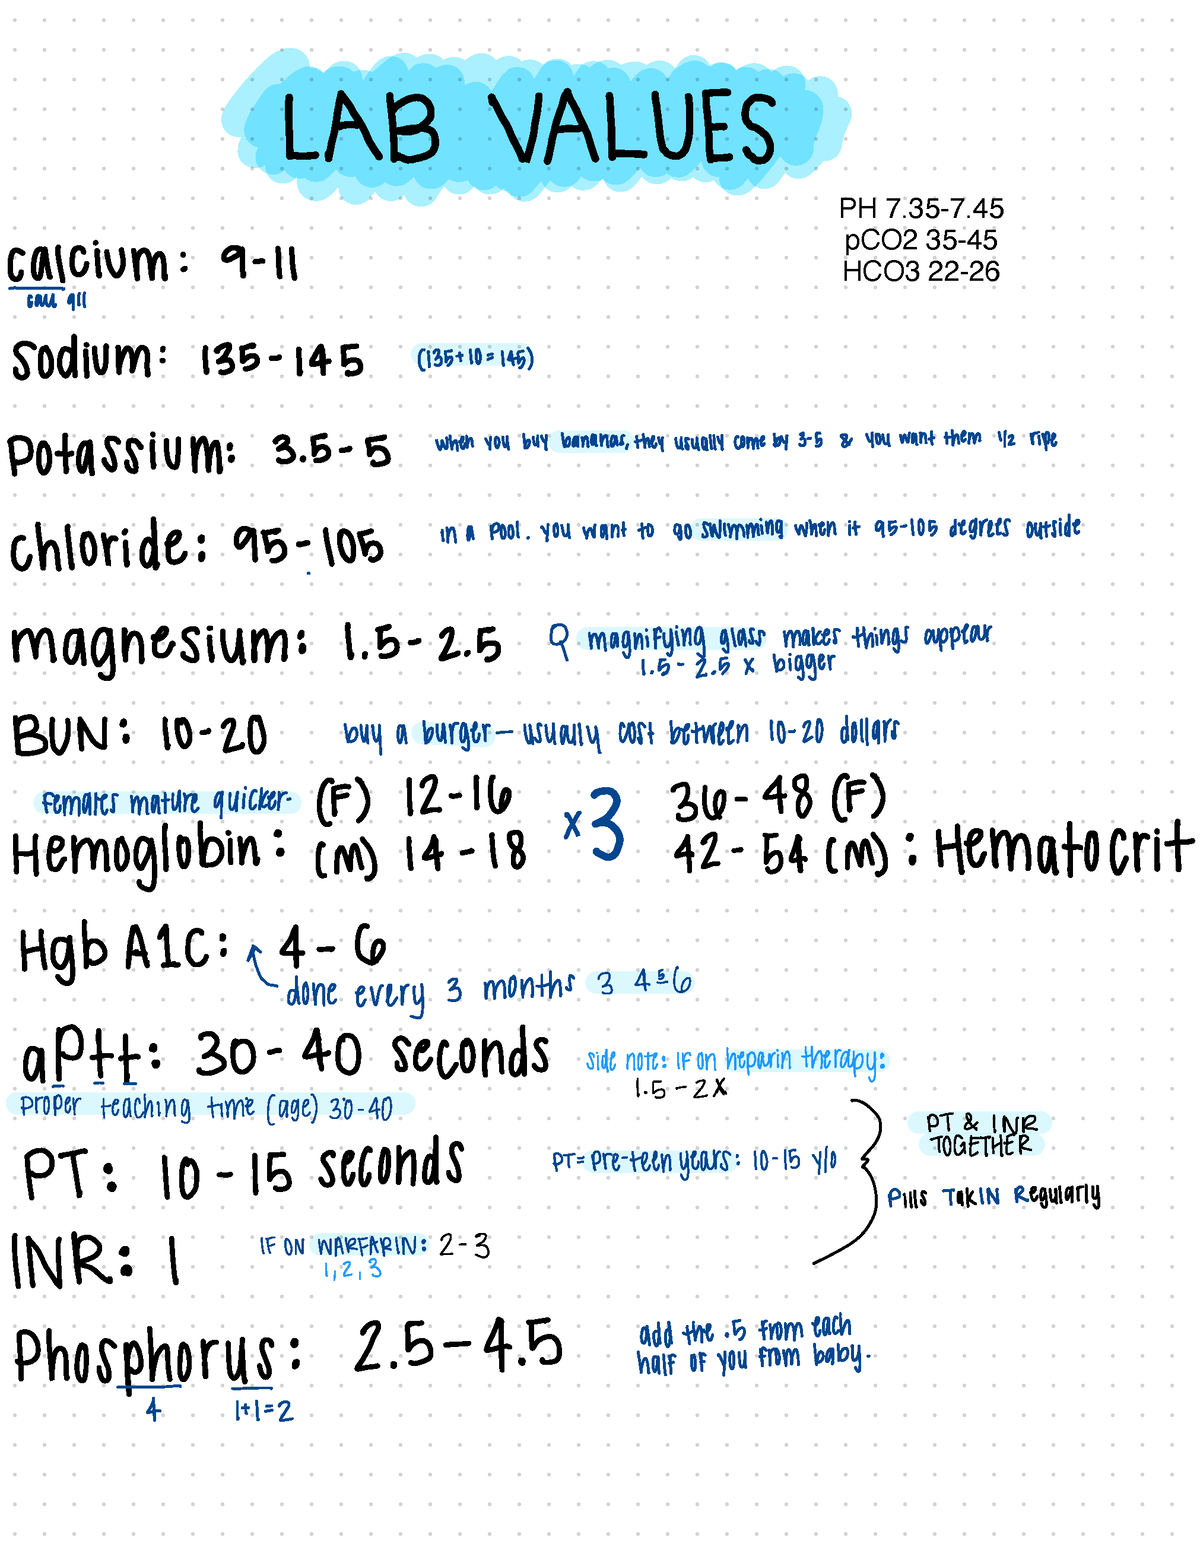 LAB VALUES
PH 7.35-7.45
pCO2 35-45
HCO3 22-26
calcium: 9-11
call 911
Sodium: 135-145 (135+10=145)
Potassium: 3.5-5 when you buy bananas, they usually come by 3-5 & you want them 1/2 ripe
chloride: 95-105 in a pool. you want to go swimming when it 95-105 degrees outside
magnesium: 1.5-2.5 magnifying glass makes things appear
1.5-2.5 x bigger
BUN: 10-20 buy a burger - usually cost between 10-20 dollars
females mature quicker- (F) 12-16 x3 36-48 (F)
Hemoglobin: (M) 14-18 42-54 (M): Hematocrit
Hgb A1C: 4-6
done every 3 months 3 4 5 6
aPtt: 30-40 seconds side note: IF on heparin therapy:
1.5-2x
proper teaching time (age) 30-40
PT & INR
TOGETHER
PT: 10-15 seconds PT= pre-teen years: 10-15 y/o
Pills TakIN Regularly
INR: 1 IF ON WARFARIN: 2-3
1, 2, 3
Phosphorus: 2.5-4.5 add the .5 from each
half of you from baby.
4 1+1=2